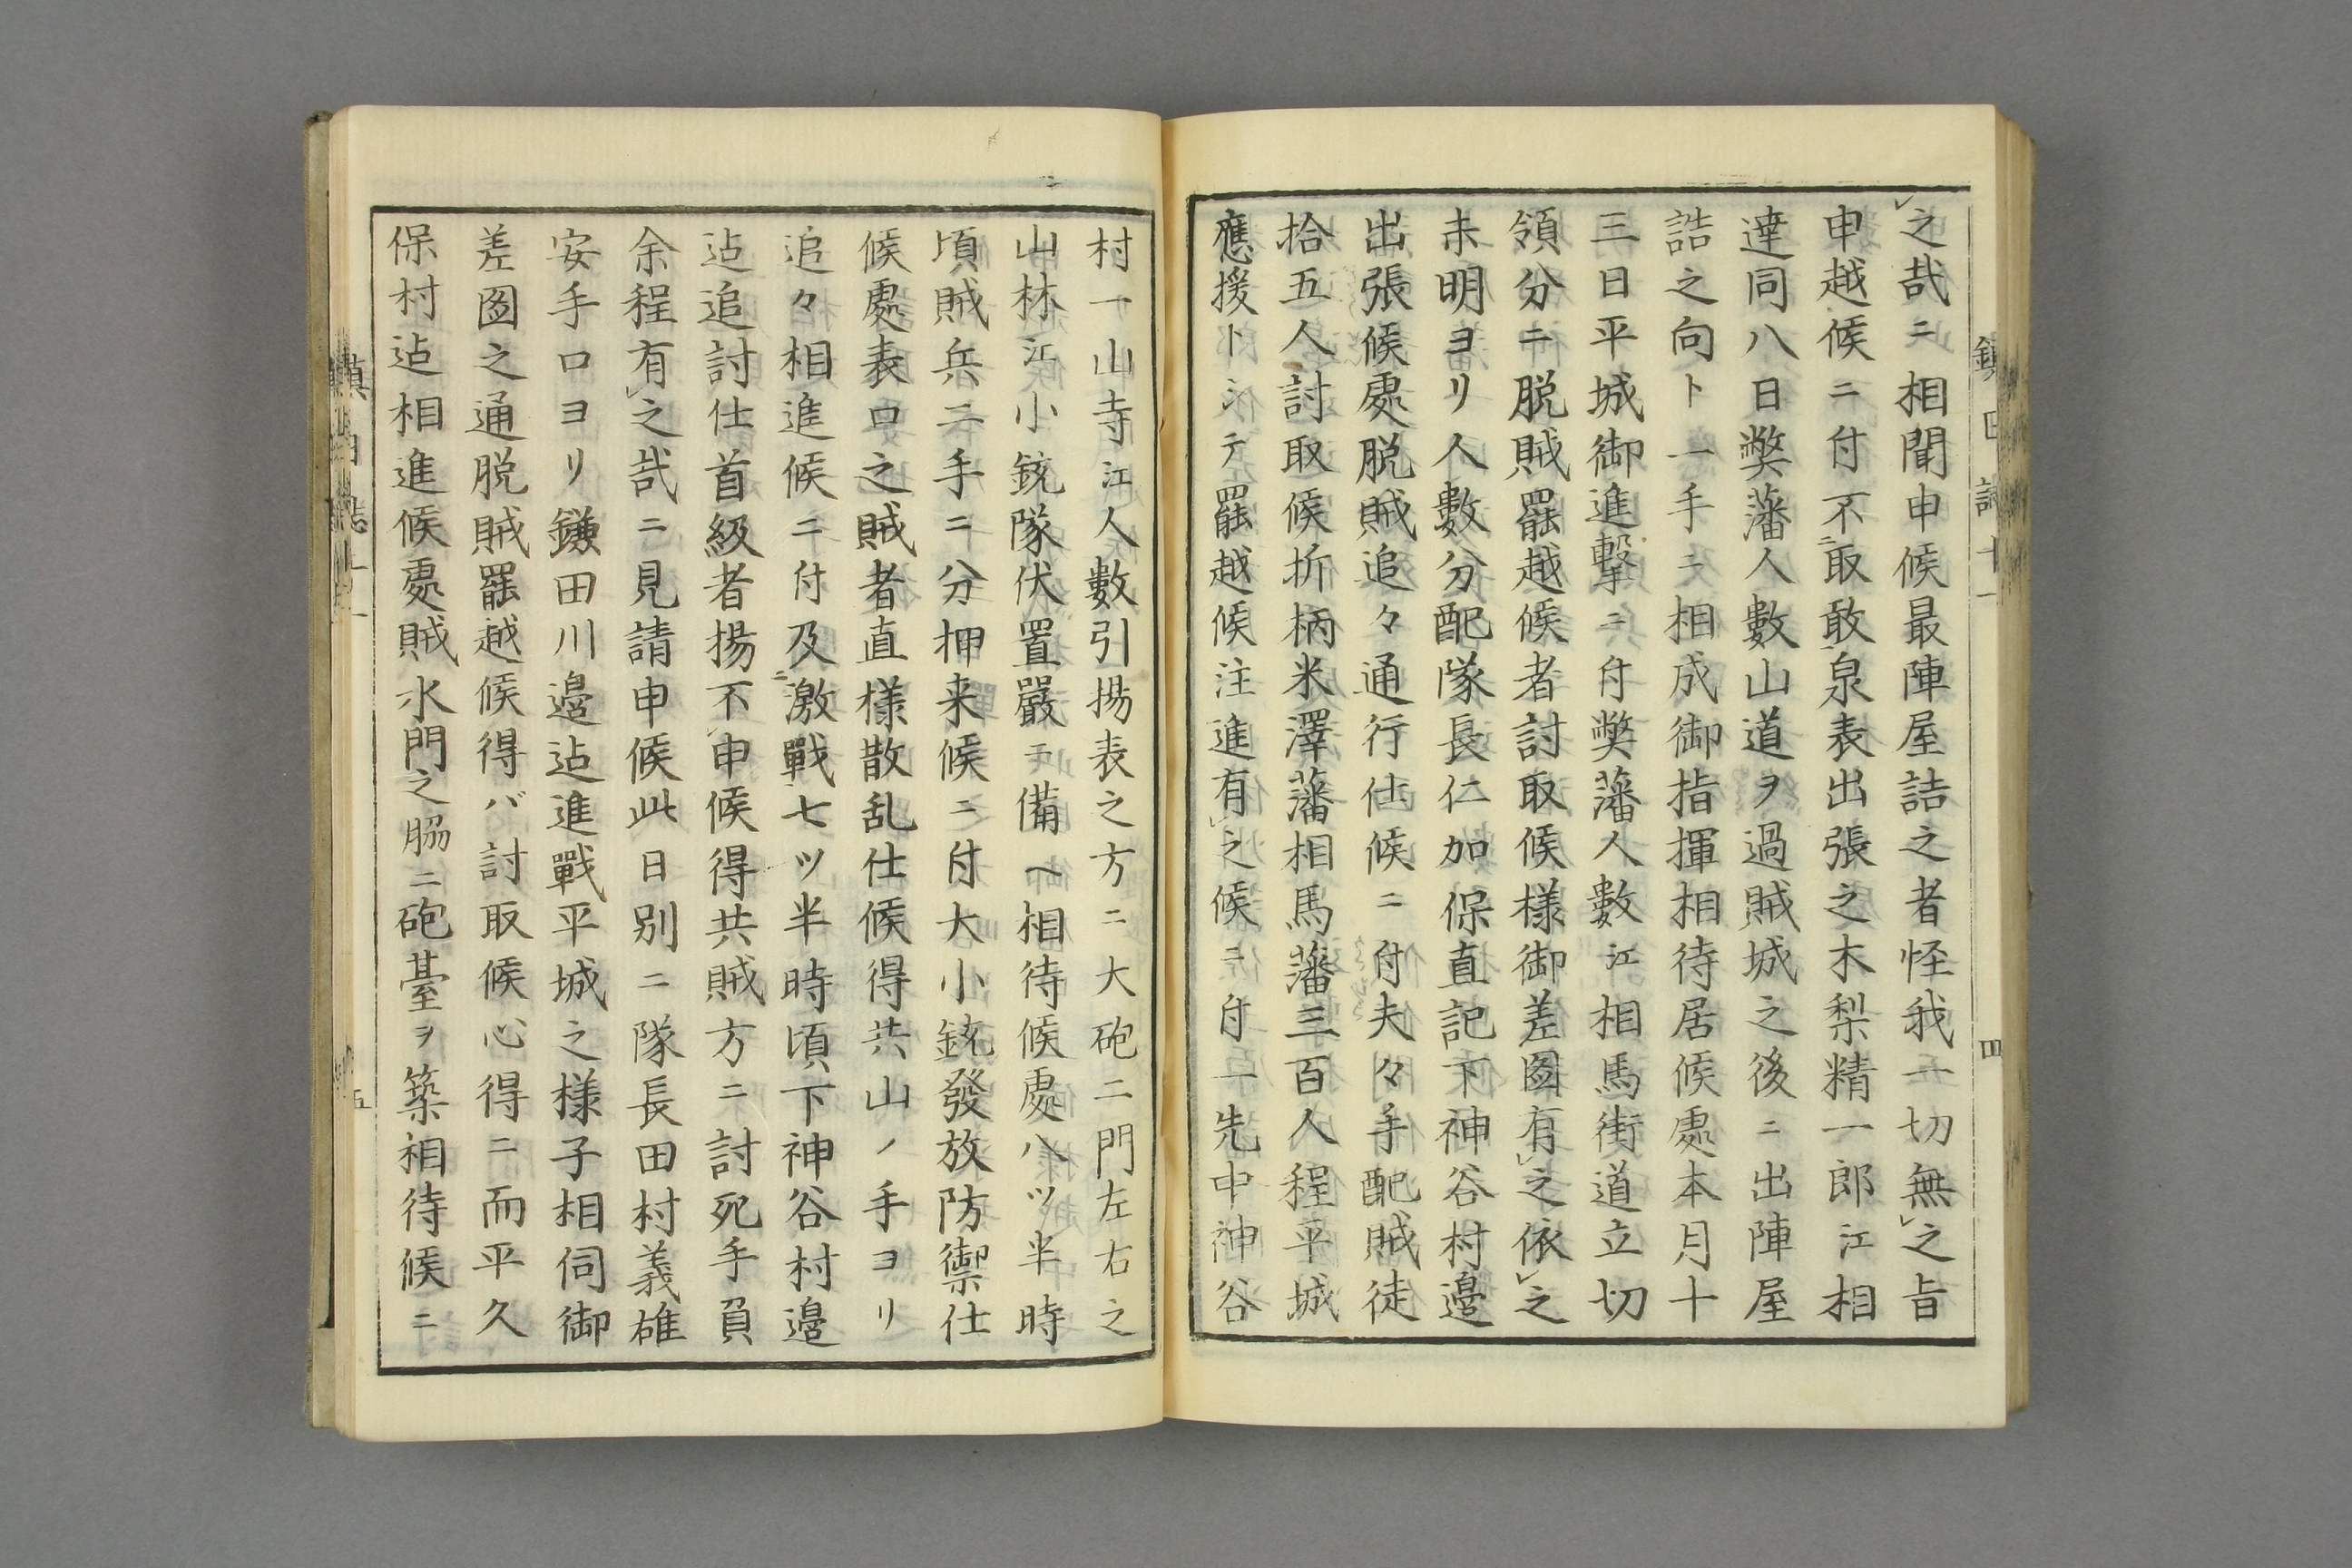 之哉ニ相聞申候最陣屋詰之者怪我一切無之旨
申越候ニ付不取敢泉表出張之木梨精一郎江相
達同八日弊藩人數山道ヲ過賊城之後ニ出陣屋
詰之向ト一手ニ相成御指揮相待居候處本月十
三日平城御進擊ニ付弊藩人數江相馬街道立切
領分ニ脱賊罷越候者討取候様御差図有之依之
未明ヨリ人數分配隊長仁加保直記下神谷村邉
出張候處脱賊追々通行仕候ニ付夫々手配賊徒
拾五人討取候折柄米澤藩相馬藩三百人程平城
應援トシテ罷越候注進有之候ニ付一先中神谷
村一山寺江人數引揚表之方ニ大砲二門左右之
山林江小銃隊伏置嚴ニ備ヘ相待候處八ツ半時
頃賊兵二手ニ分押来候ニ付大小銃發放防禦仕
候處表口之賊者直様散乱仕候得共山ノ手ヨリ
追々相進候ニ付及激戰七ツ半時頃下神谷村邉
迠追討仕首級者揚不申候得共賊方ニ討死手負
余程有之哉ニ見請申候此日別ニ隊長田村義雄
安手口ヨリ鎌田川邉迠進戰平城之様子相伺御
差図之通脱賊罷越候得バ討取候心得ニ而平久
保村迠相進候處賊水門之脇ニ砲臺ヲ築相待候ニ
四
五